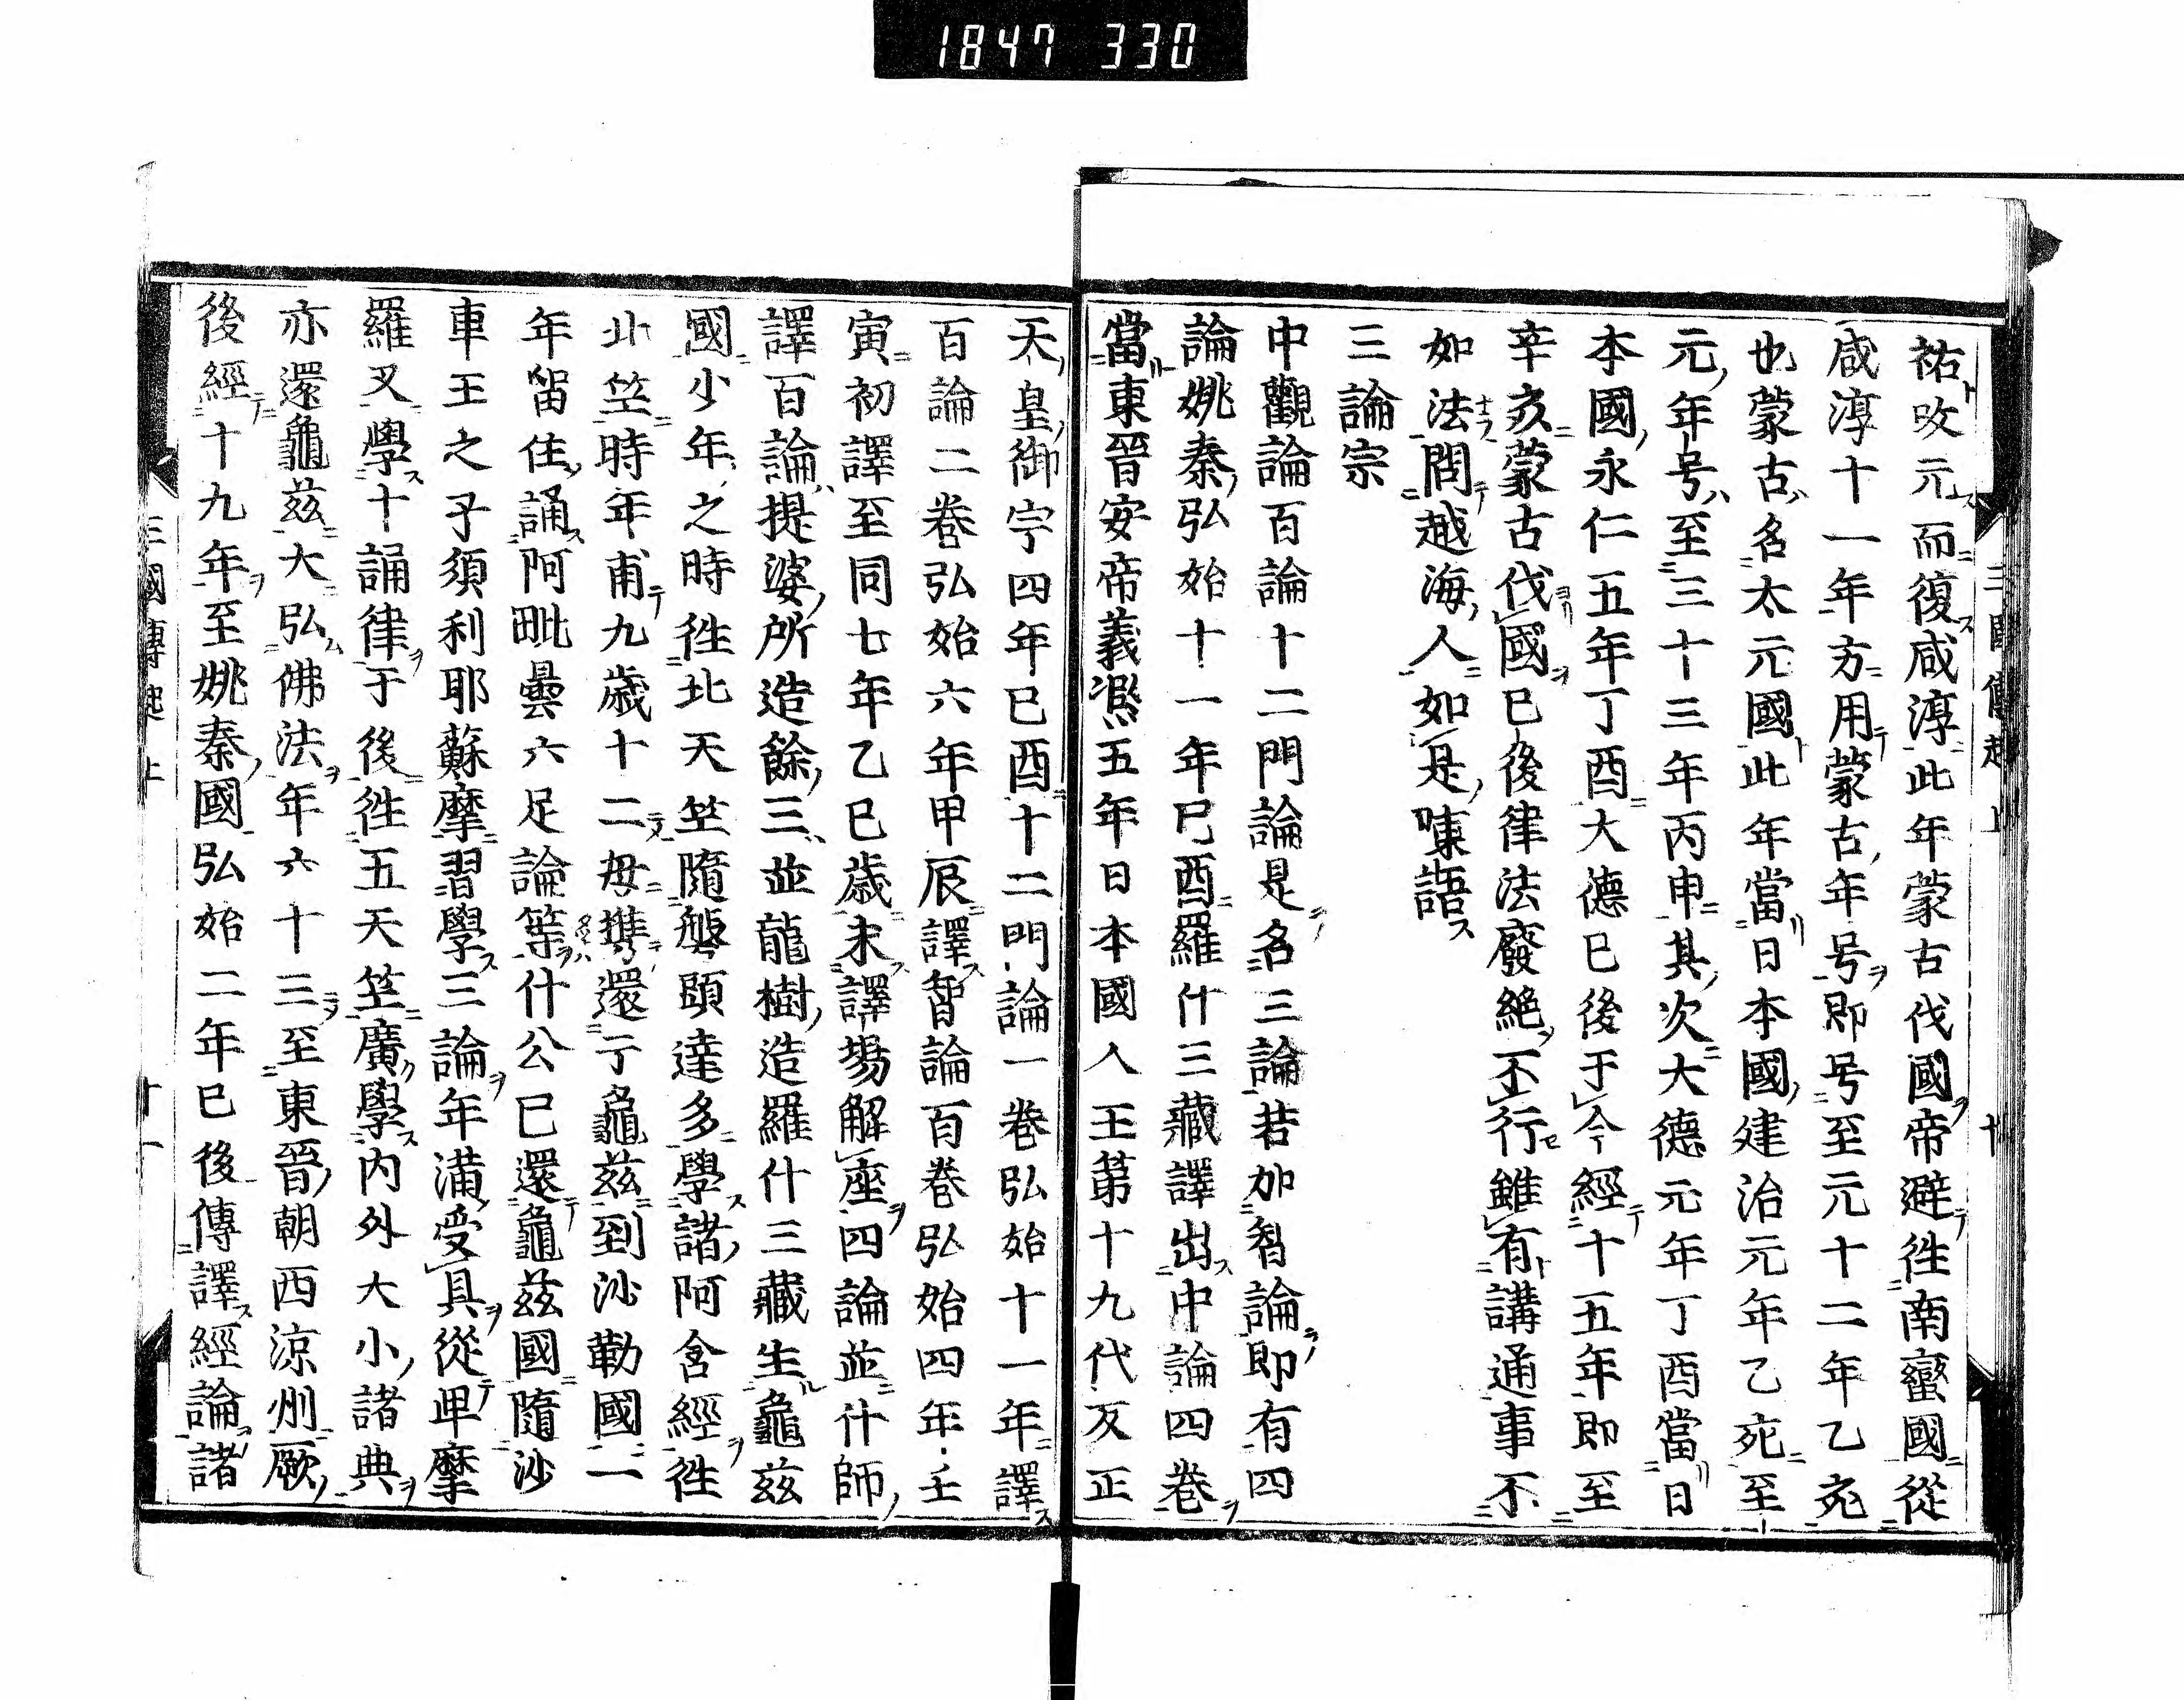 1847 330
三國傳起上 十
祐改元而復咸淳此年蒙古伐國帝避徃南蠻國從
咸淳十一年方用蒙古年号即号至元十二年乙亥
也蒙古名太元國此年當日本國建治元年乙死至
元年号至三十三年丙申其次大德元年丁酉當日
本國永仁五年丁酉大德已後于今經十五年即至
辛亥蒙古伐國已後律法廢絶不行雖有講通事不
如法問越海人如是陳語
三論宗
中觀論百論十二門論是名三論若加智論即有四
論姚秦弘始十一年巳酉羅什三藏譯出中論四卷
當東晉安帝義凞五年日本國人王第十九代反正
天皇御宇四年巳酉十二門論一卷弘始十一年譯
百論二卷弘始六年甲辰譯智論百卷弘始四年壬
寅初譯至同七年乙巳歲末譯場解座四論並什師
譯百論提婆所造餘三並龍樹造羅什三藏生龜茲
國少年之時徃北天竺隨槃頭達多學諸阿含經徃
北竺時年甫九歲十二母携還亍龜茲到沙勒國一
年留住誦阿毗曇六足論等什公已還龜茲國隨沙
車王之子須利耶蘇摩習學三論年滿受具從卑摩
羅叉學十誦律于後徃五天竺廣學内外大小諸典
亦還龜茲大弘佛法年六十三至東晉朝西涼州厥
後經十九年至姚秦國弘始二年已後傳譯經論諸
三國傳起上 十一